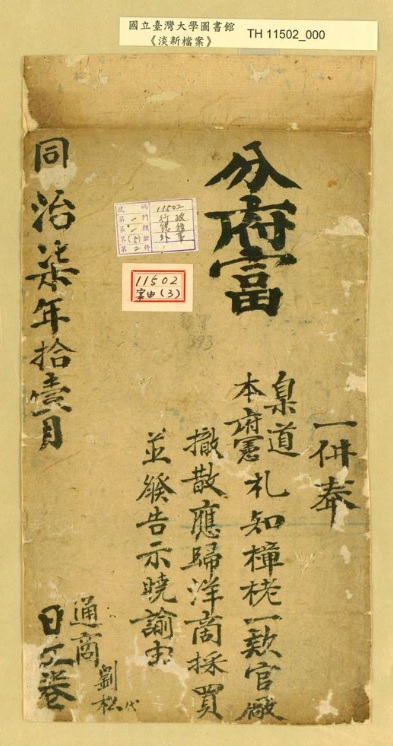 國立臺灣大學圖書館
《淡新檔案》
TH 11502_000
分府富
一併奉
臬道
本府憲
札知樟栳一款官廠
撤散應歸洋商採買
並發告示曉諭由
同治柒年拾壹月
日立卷
通商
劉松代
11502
11502
案由(3)